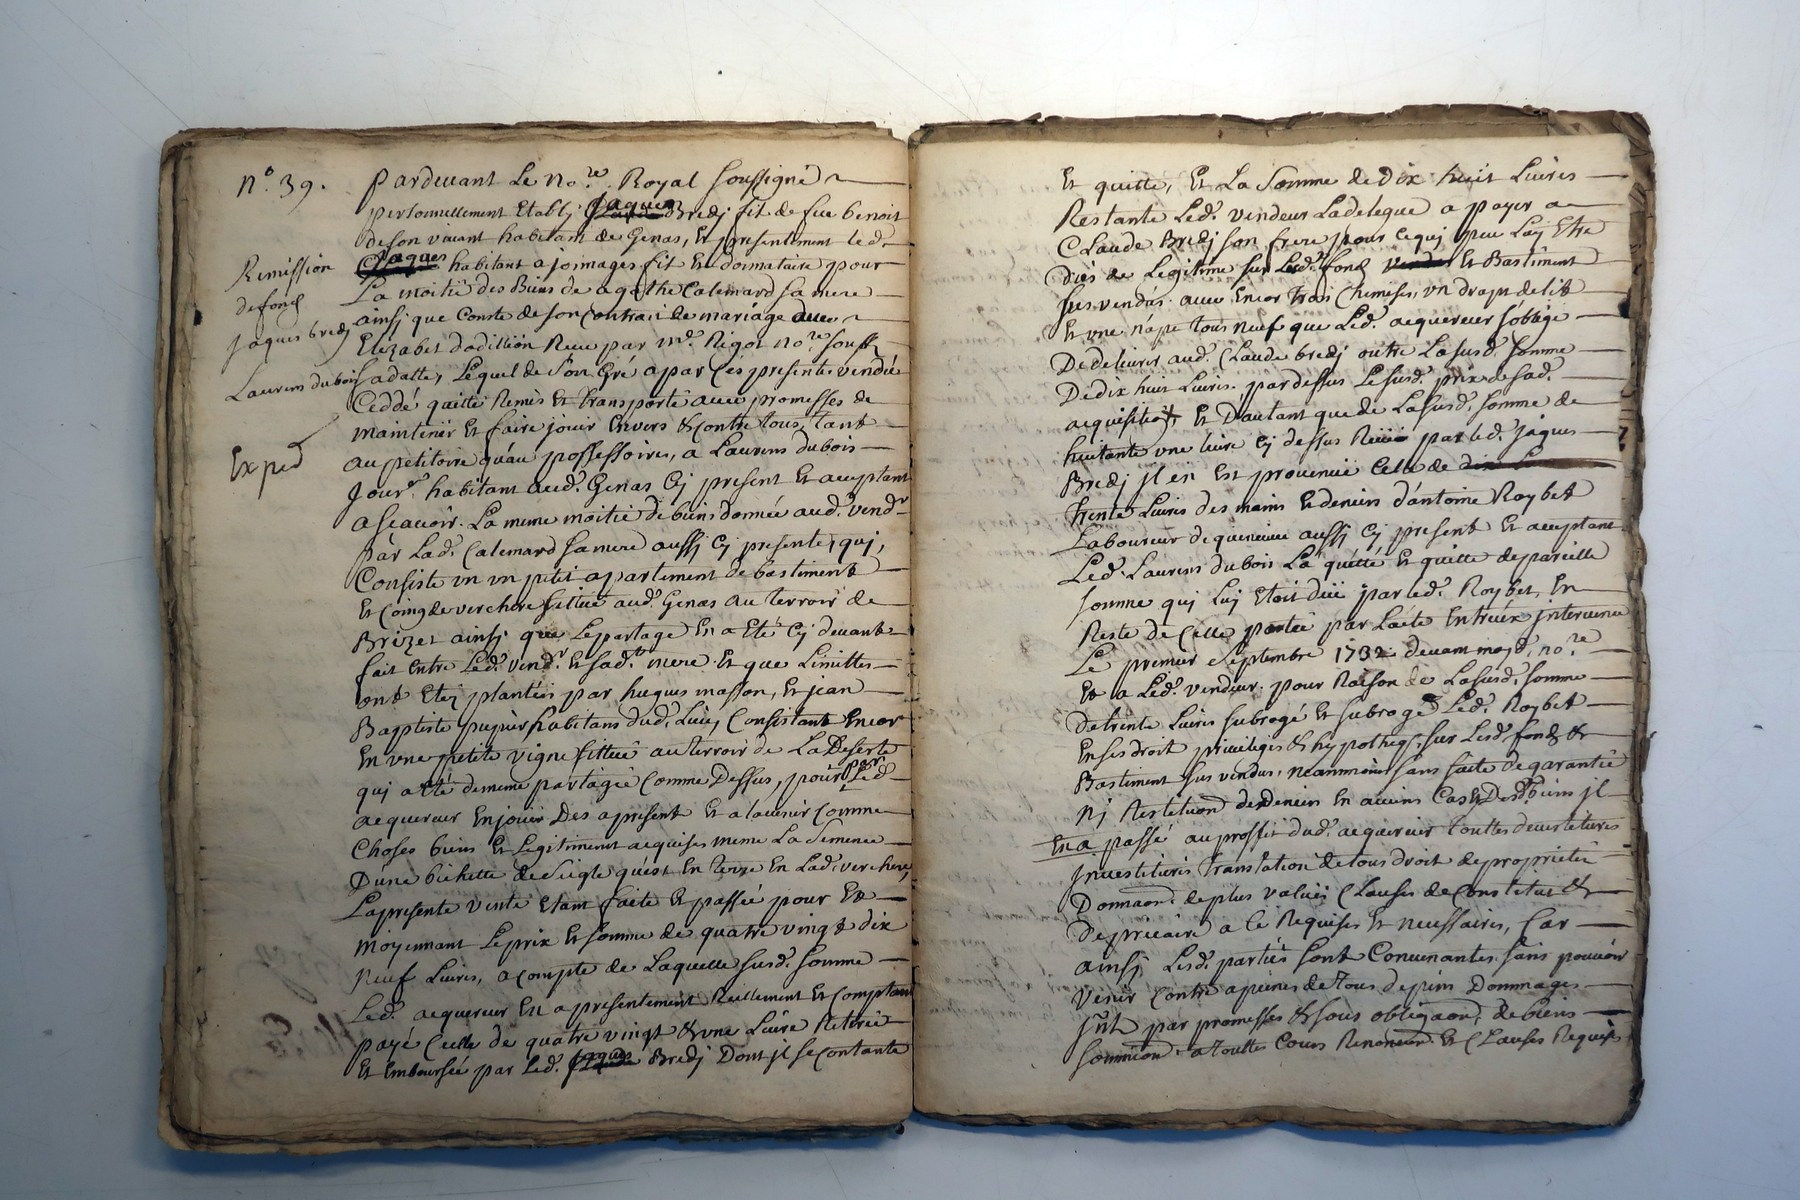 N.º 39.
Remission
de fond
Jaques bredj
Laurens dubois
Exped
Pardeuant Le no.re Royal soussigné
personnellement Etablj Jaques Bredj fit de feu benoit
de son viuant habitant de Genas, Et presentement led.
Jaques habitant a joimages fit Et donnataire pour
La moitié des Biens de agathe Calemard sa mere
ainsj que Conste de son Contrat de mariage auec
Elizabet dodillion Receu par m.e Rigot no.re souss.
sa datte, Lequel de son Gré a par Ces presentes vendu
Ceddé quitté Remis Et transporté auec promesses de
maintenir Et faire jouir Envers & contre tous, tant
au petitoire qu'au possessoires, a Laurens dubois
Jour.r habitant aud. Genas Cj present Et acceptant
a scauoir. La meme moitié de biens donnée aud. vend.r
par Lad. Calemard sa mere aussj Cj presente, quj,
Consiste un un petit apartement de bastiment
Et Coing de verchere sittué aud. Genas au terroir de
Brizet ainsj que Le partage En a Eté Cj deuant
fait Entre Led. vend.r Et sad. mere. Et que Limittes
ont Etéj plantées par hugues masson, Et jean
Baptiste pupier habitans dud. Lieu, Consistant Encor
En une petite vigne sittuée au terroir de La Deserte
quj a été de meme partagée Comme Dessus, pour par Led.
acquereur En jouir Des apresent Et a lauenir Comme
Choses biens Et Legitiment acquises meme La Semence
D'une bichette de seigle quést En terre En Lad. verchere,
La presente vente Etant faite Et passée pour Et
moyennant Le prix Et somme de quatre vingt dix
neuf Liures, a compte de Laquelle susd. somme
Led. acquereur En a presentement Reellement Et comptant
payé Celle de quatre vingt & une Liure Retirée
Et Emboursée par Led. Jaques Bredj Dont jl se contante
Et quitte, Et La Somme de Dix huit Liures
Restante Led. vendeur La delegue a payer a
Claude Bredj son frere pour Ce quj peu Luy Etre
deüs de Legitime sur Lesd. fond vendu Et Bastiment
sus vendus. auec Encor trois Chemises, vn drapt de lit
Et vne nape tous neuf que Led. acquereur s'oblige
De deliurer aud. Claude bredj outre La susd. somme
De dix huit Liures. par dessus Le susd. prix de sad.
acquisition, Et D'autant que de La susd. somme de
huitante vne liure Cj dessus Receüe par led. Jaques
Bredj jl en Est prouenüe Celle de
trente Liures des mains Et deniers d'antoine Roybet
Laboureur de aussj Cj present Et acceptant
Led. Laurens dubois La quitté Et quitte de pareille
somme quj Luj Etoit düe par led. Roybet, En
Reste de Celle portée par L'acte Entr'eux Interuenu
Le premier Septembre 1732 deuant moyd. no.re
Et a Led. vendeur. pour Raison de La susd. somme
de trente Liures subrogé Et subroge Led. Roybet
En ses droit priuileges & hypotheq. sur Lesd. fond &
Bastiment sus vendus, neanmoins sans suite de garantie
Nj Restetuon desd. deniers En aucuns Cas Et Desd. biens jl
En a passé au proffit dud. acquereur touttes deuestitures
Inuestitures Translation de tous droit de proprietée
Donnaon. de plus valüe Clauses de Constitut &
de precaire a Ce Requises Et necessaires, Car
ainsj Lesd. parties sont Conuenantes. sans pouuoir
Venir Contre a peines de tous depens Dommages
par promesses & sous obligaon. de biens
soumiōn. a touttes Cours Renonciōn. Et Clauses Requises